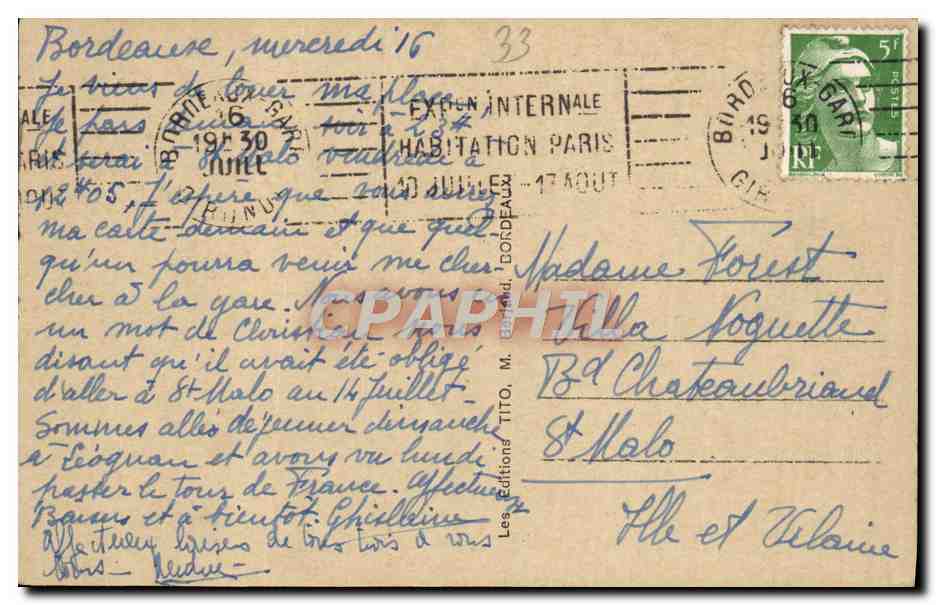 Bordeaux, mercredi 16
33
Je viens de louer ma place,
Je pars demain soir à 23H
et serai à St Malo vendredi à
12H05. J'espère que vous aurez
ma carte demain et que quel-
qu'un pourra venir me cher-
cher à la gare. Nous avons eu
un mot de Christian nous
disant qu'il avait été obligé
d'aller à St Malo au 14 Juillet-
Sommes allés déjeuner dimanche
à Léognan et avons vu lundi
passer le tour de France. Affectueux
Baisers et à bientôt. Ghislaine
Affectueux baisers de tous trois à vous
tous-
BORDEAUX-GARE
16
19H30
JUILL
GIRONDE
EXPON INTERNALE
HABITATION PARIS
10 JUILLET - 17 AOUT
BORDEAUX-GARE
19 30
GIR
5F
POSTES
RF
Les Editions TITO, M. Berjaud, BORDEAUX
CPAPHIL
Madame Forest
Villa Noguette
Bd Chateaubriand
St Malo
Ille et Vilaine